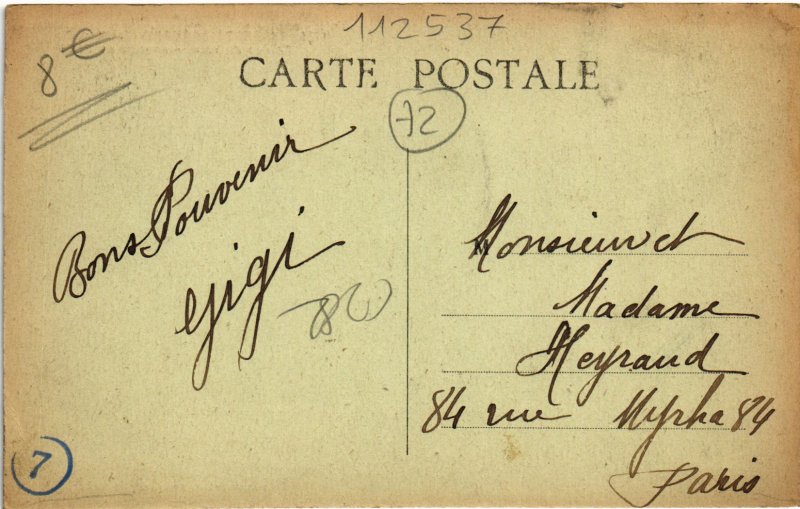 112537
8 €
CARTE POSTALE
72
Bons Souvenir
Gigi
Monsieur et
Madame
Meyraud
84 rue Myrha 84
Paris
7